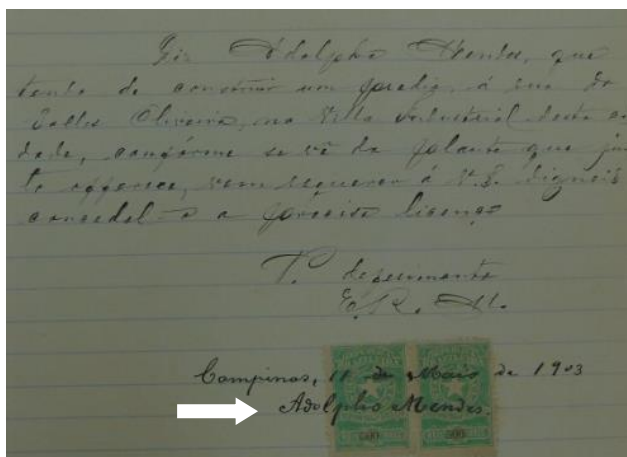 Diz Adolpho Mendes, que
tendo de construir um predio, á rua Dr
Salles Oliveira, na Villa Industrial desta ci
dade, confórme se vê da planta que jun
to offerece, vem requerer á V.S. digneis
concedel-o a precisa licença
P. deferimento
E. R. M.
Campinas, 11 de Maio de 1903
Adolpho Mendes.